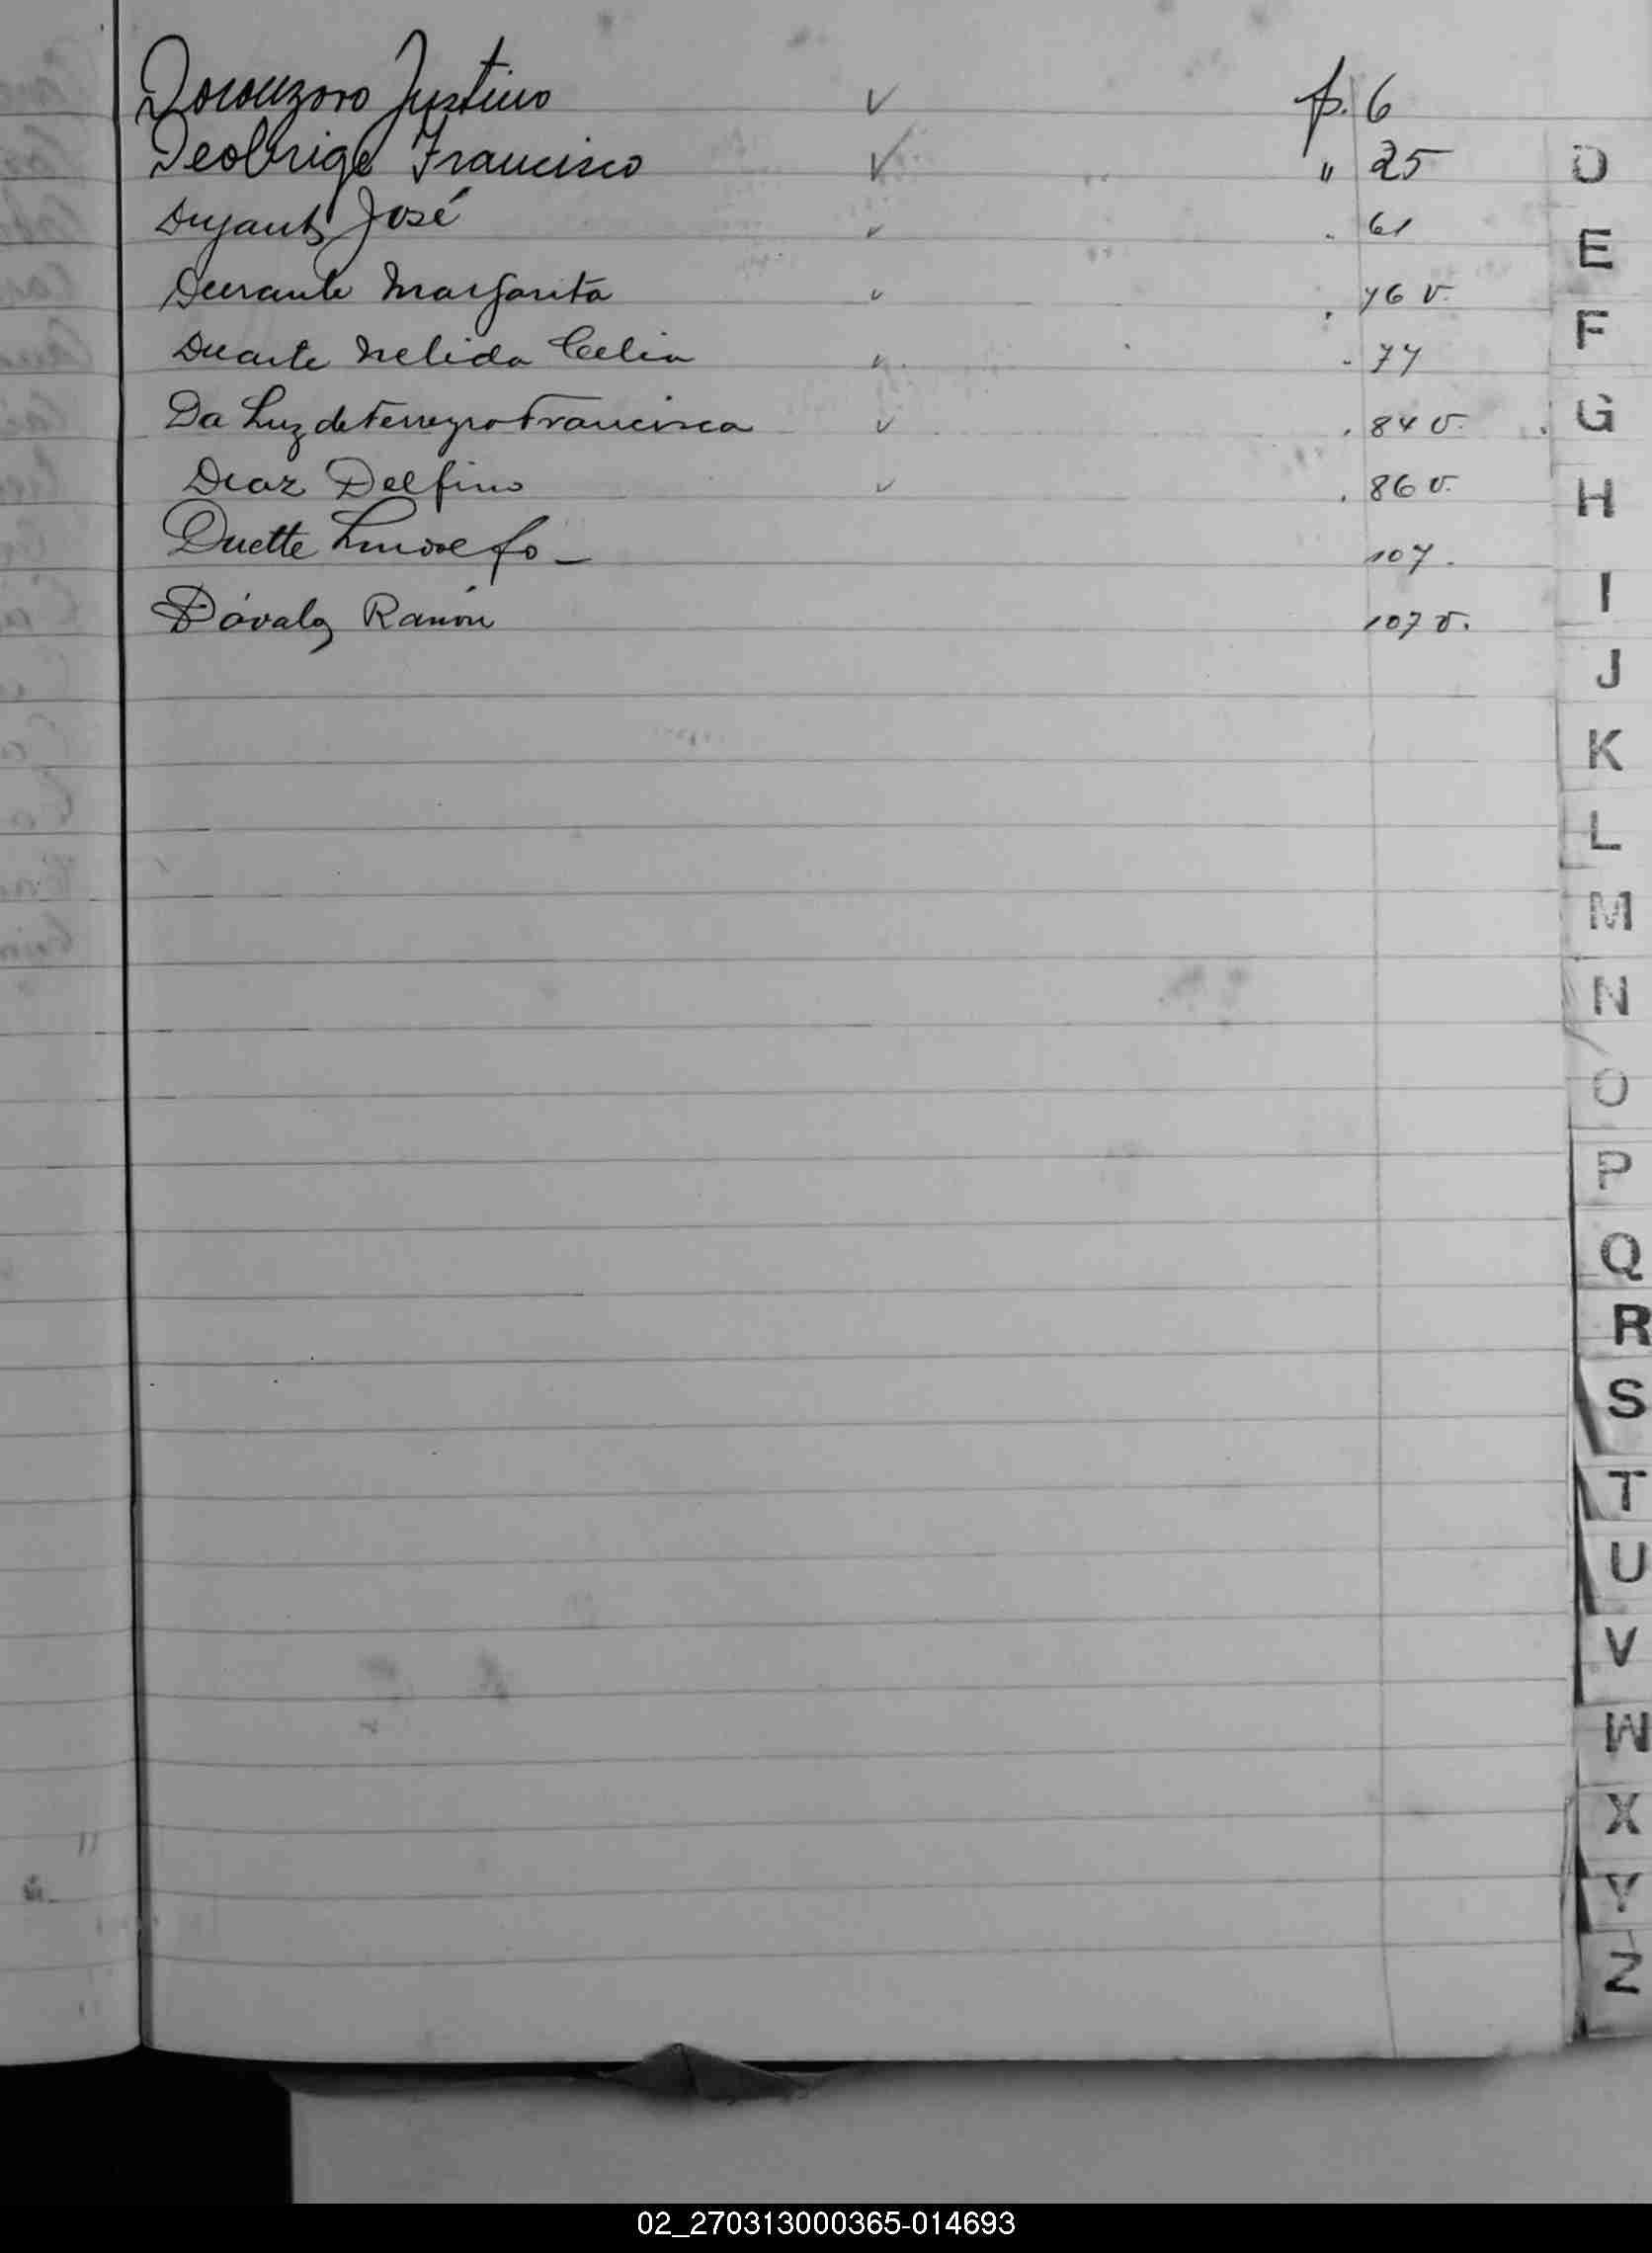 Doronzoro Justino ✓ p. 6
Deobrige Francisco ✓ " 25
José ✓ . 61
Durante Margarita ✓ . 76 v.
Duarte Nelida Celia ✓ . 77
Da Luz de Ferreyro Francisca ✓ . 84 v.
Diaz Delfino ✓ . 86 v.
Duette Lindolfo - 107.
Dávalo Ramón 107 v.
D
E
F
G
H
I
J
K
L
M
N
O
P
Q
R
S
T
U
V
W
X
Y
Z
02_270313000365-014693